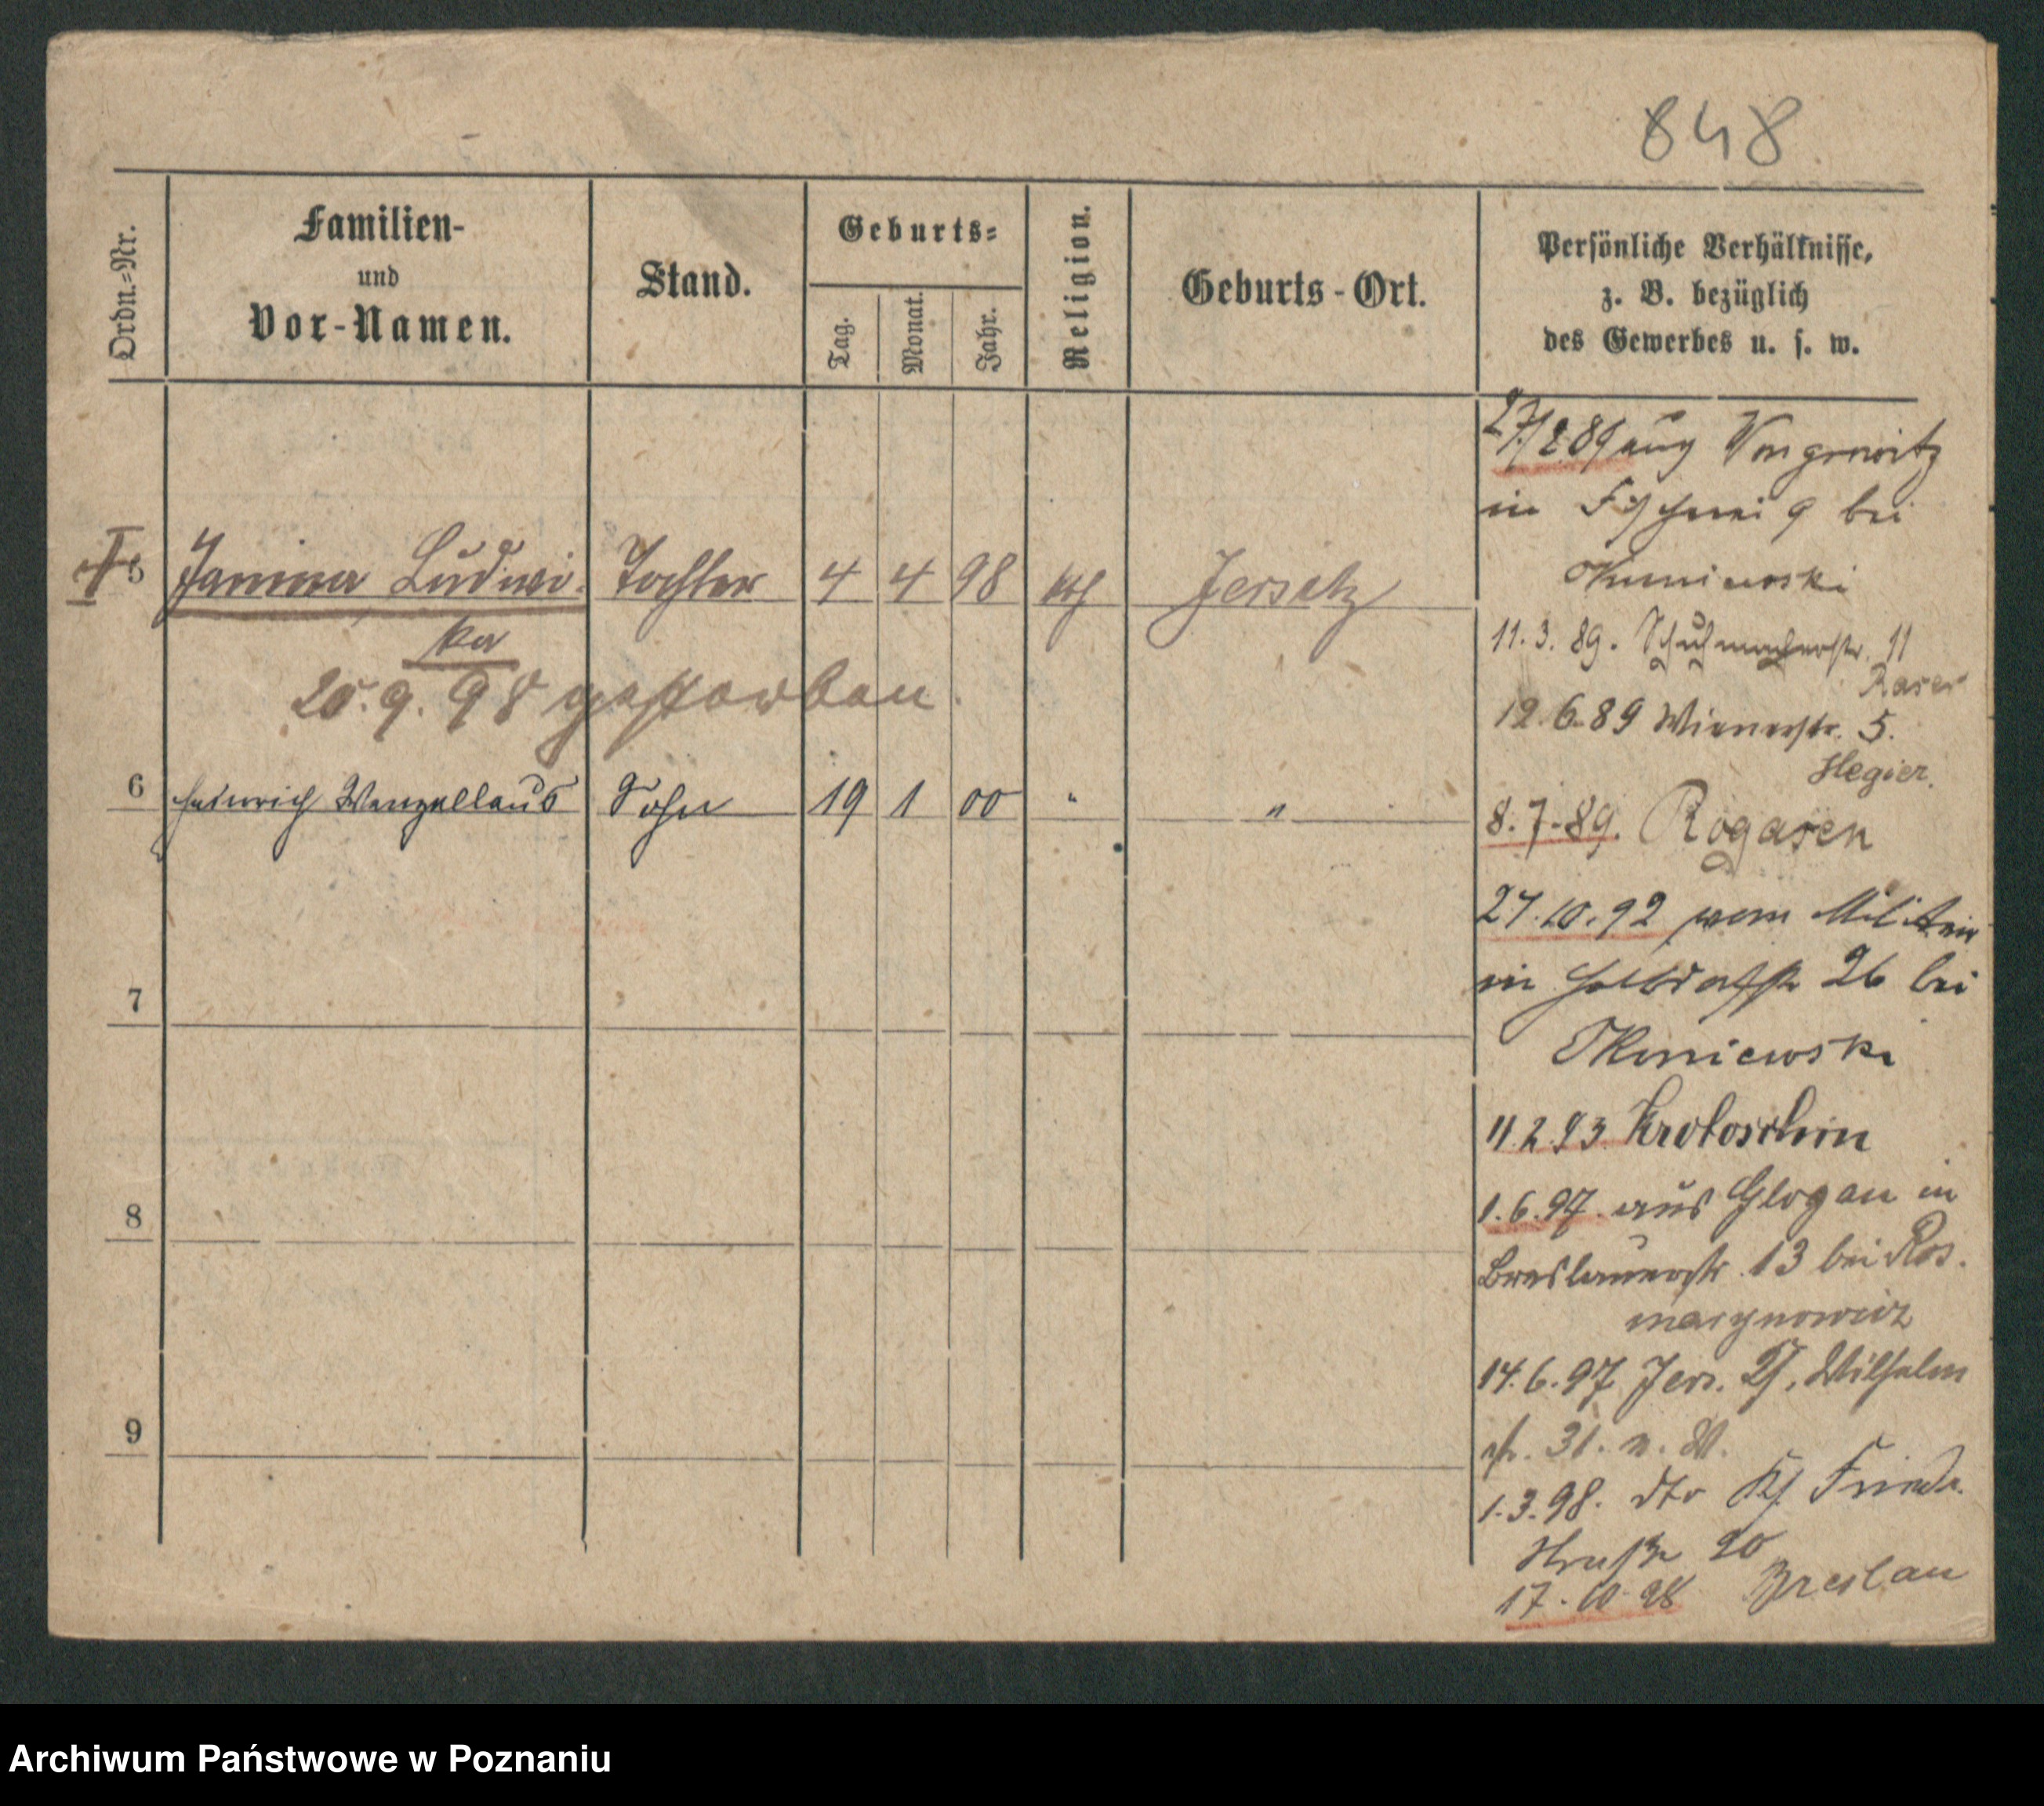 848
Ordn.-Nr.
Familien-
und
Vor-Namen.
Stand.
Geburts-
Tag.
Monat.
Jahr.
Religion.
Geburts-Ort.
Persönliche Verhältnisse,
z. B. bezüglich
des Gewerbes u. s. w.
5 Janina Ludwi- Tochter 4 4 98 kth Jersitz
ka
20. 9. 98 gestorben.
6 Heinrich Wenzellaus Sohn 19 1 00 " "
7
8
9
in Fischerei 9 bei
Okoniewski
11. 3. 89. Schuhmacherstr. 11
12. 6. 89 Wienerstr. 5.
Hegier.
8. 7. 89. Rogasen
27. 10. 92 vom Militair
in 26 bei
Okoniewski
11. 2. 93 Krotoschin
1. 6. 97. aus Glogau in
Breslauerstr. 13 bei Ros.
marynowicz
14. 6. 97 Jers. Wilhelm
str. 31. n. W.
1. 3. 98. dto Friedr.
Straße 20
17. 10. 98 Breslau
Archiwum Państwowe w Poznaniu